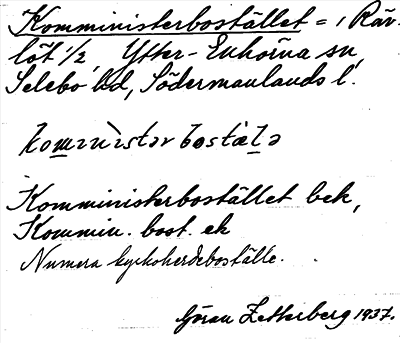 Komministerbostället = , Rär-
löt 1/2, Ytter-Enhörna sn,
Selebo hd, Södermanlands l.
kom̲inistər bostäl̲ə
Komministerbostället bek,
Kommin. bost. ek
Numera kyrkoherdeboställe.
Göran Zetterberg 1937.